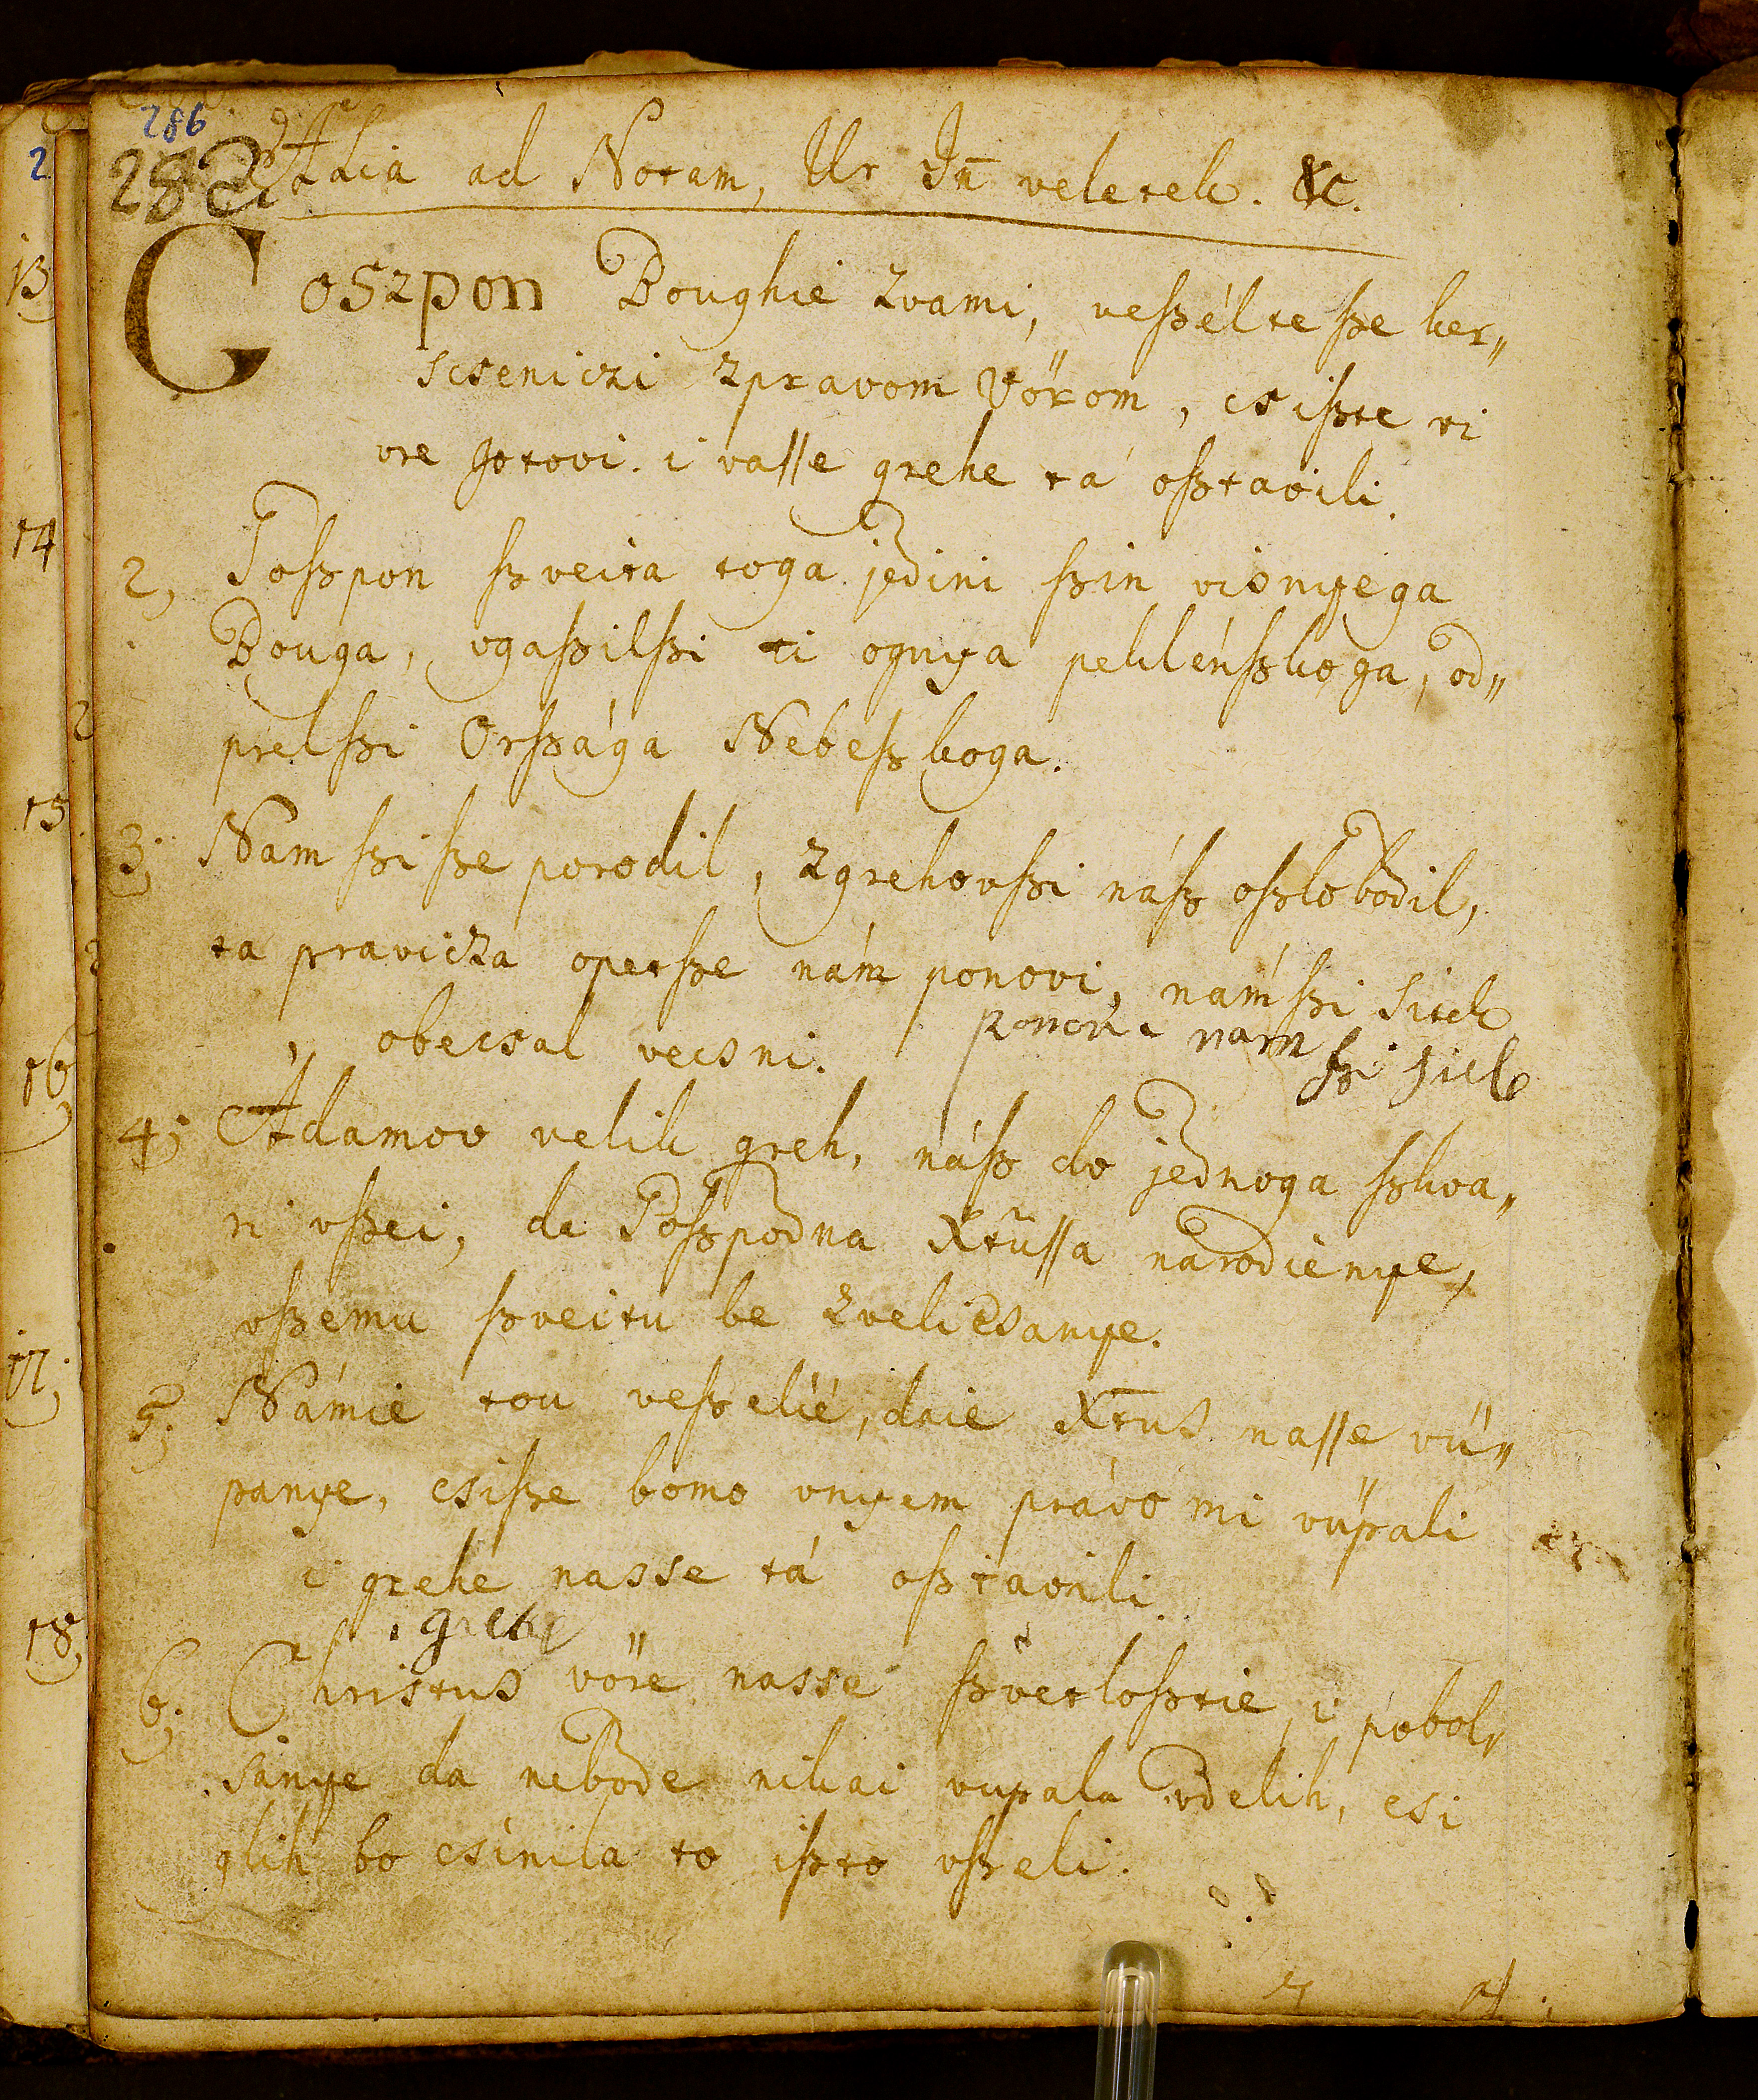 286
282
Alia ad Notam, Ur Jn̄ veletek. &c.
Goszpon Boughie zvami, veßélte ße ker„
scseniczi zpravom Vörom, csißte vi
vre gotovi. i vasse grehe tá oßtavili.
2, Goßpon ßveita toga jedini ßin visnyega
Bouga, vgaßilßi ti ognya peklénßkoga, od„
prelßi Orßága Nebeßkoga.
3; Nam ßi ße porodil, zgrehovßi náß oßlobodil,
ta pravicza opetße nám ponovi, námßi sitek
„ obecsal vecsni.
ponovi nam
ßi sitek
4; Adamov velik greh, náß do jednoga ßkva„
ri vßei, de Goßpodna Xtussa narodienye,
vßemu ßveitu be zvelicsanye.
5; Námie tou veßelié, daie Xtus nasse vü„
panye, csiße bomo vnyem právo mi vüpali
i grehe nasse tá oßtavili.
i grehe
6; Christus vöre nasse ßvetloßtie, i pobol„
sánye da nebode nikai vupala vdelih, csi
glih bo csinila to ißto vßeli.
13
14
15
16
17;
18;